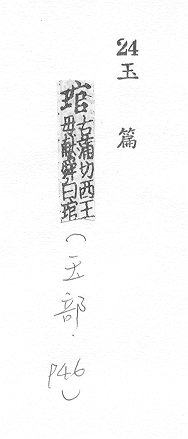 24
玉篇
琯古滿切西王
母獻舜白琯
(玉部.P46)